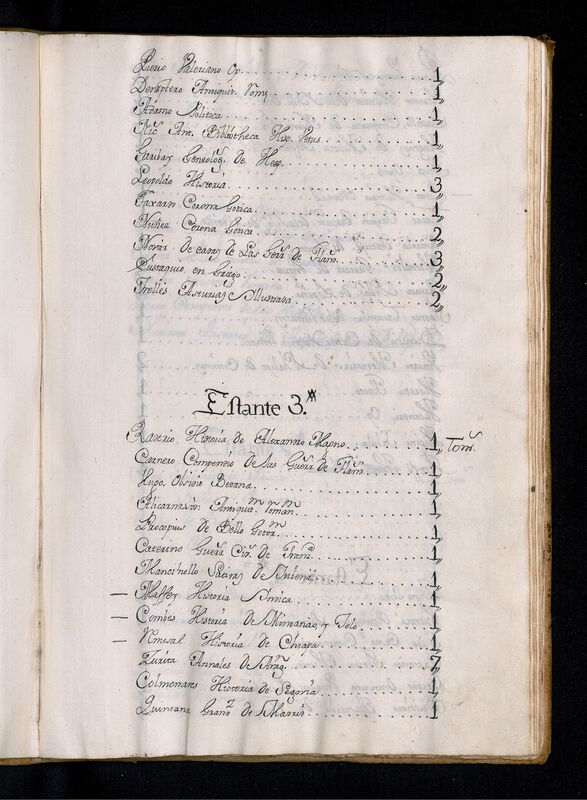 Pierio Valeriano Op. 1,,
Dempstero Antiquit. Rom. 1,,
Adamo Politica 1,,
Nic. Ant. Bibliotheca Hisp. Vetus 1,,
Garibay Geneolog. de Hesp. 1,,
Leopoldo Historia 3
Faxardo Corona Gotica 1,,
Nuñez Corona Gotica 2,,
de Las Guer.s de Fland. 3,,
Eustaquio en Griego 2,,
Trelles Asturias Illustrada 2,,
Estante 3.
Raderio Historia de Alexandro Magno 1,, Tom.
Carnero Compendio de las Guer.s de Fland. 1,,
Hugo. Obsidio Bredana 1,,
Alicarnasio Antiquit. Roman. 1,,
Procopius de Bello Gotor. 1,,
Caterino Guer.s Civ. de Franc. 1,,
Mancinello Satiras de Jubenal 1,,
Maffey Historia Indica 1,,
Combes Historia de Mindanao, y Jolo 1,,
Remesal Historia de Chiapa 1,,
Zurita Annales de Arag. 7,,
Colmenares Historia de Segovia 1,,
Quintana Grand.z de Madrid 1,,